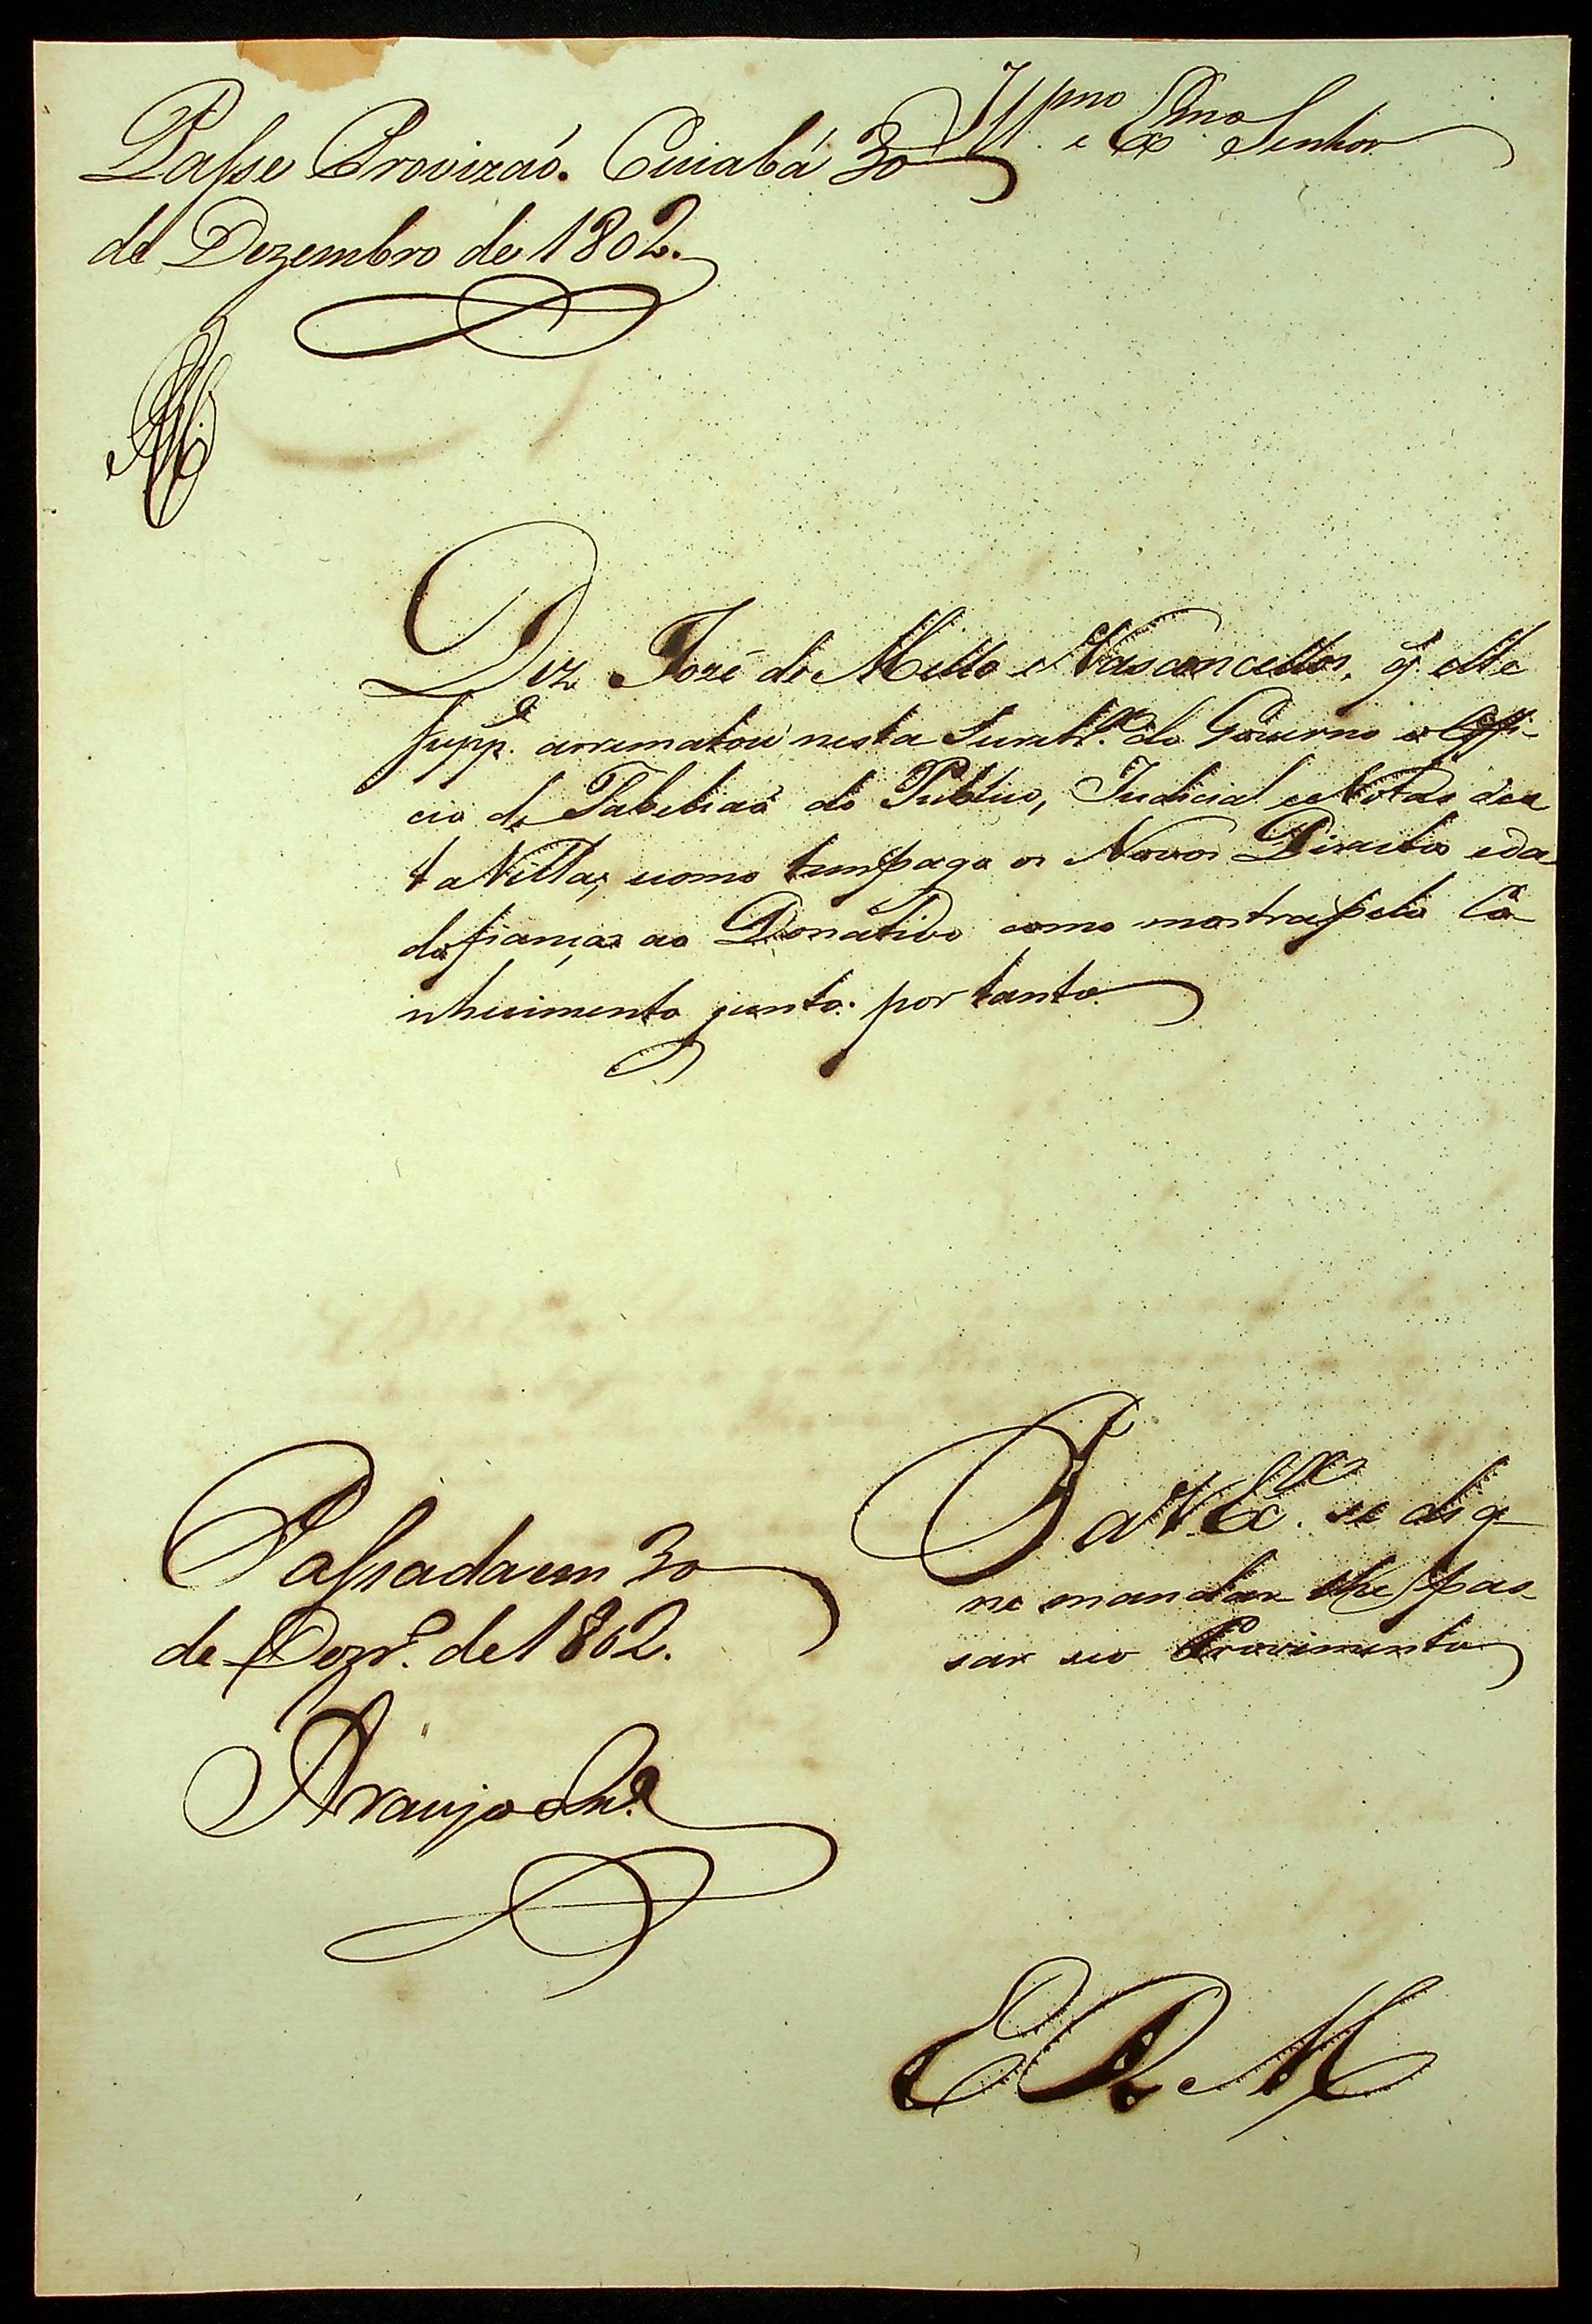 Ill.mo e Ex.mo Senhor
Passe Provizaõ. Cuiabá 30
de Dezembro de 1802.
Diz Jozé de Mello e Vasconcellos, q̃ elle
Supp.e arrematou nesta Secretr.a do Governo o Offi-
cio de Tabeliaõ do Publico, Judicial e Notas des
ta Villa, e como tem pago os Novos Direitos e da
do fiança ao Donativo como mostra pelo Co
nhecimento junto. por tanto
P a V. Ex.a se dig
ne mandar lhe pas
sar seo Provimento
Passada em 30
de Dezr.o de 1802.
Araujo
E R M